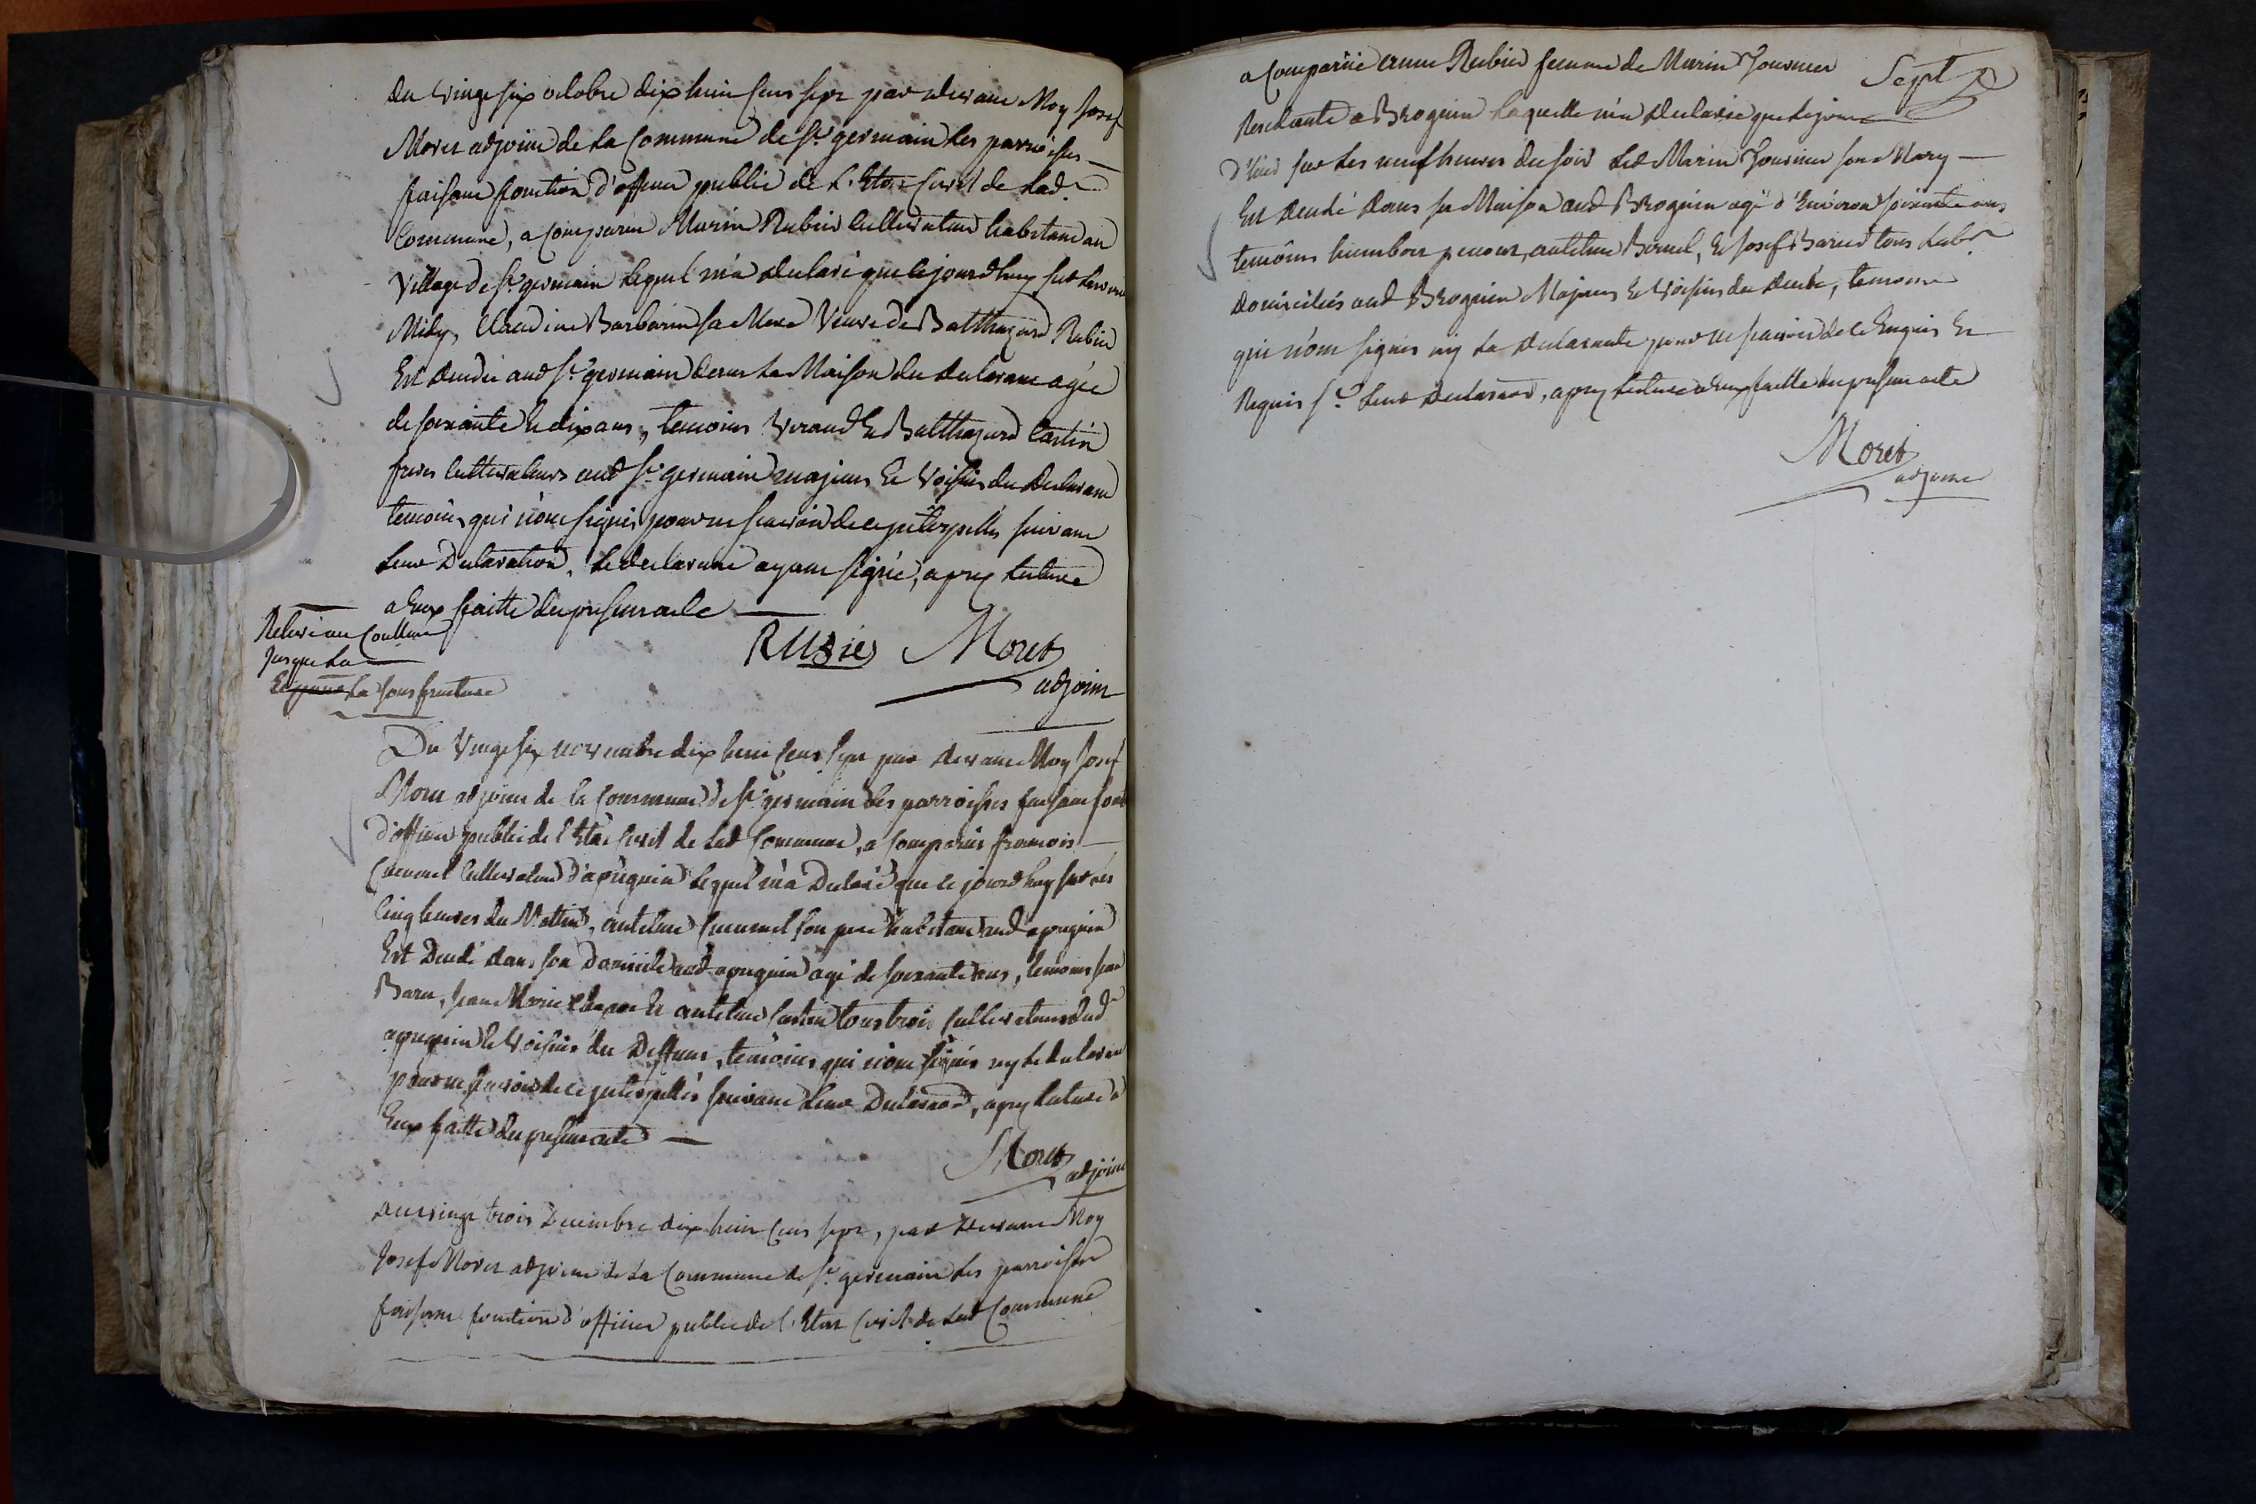 du vingt six octobre dix huit cens sept par devant Moy Josef
Moret adjoint de la Commune de St germain les parroisses
faisant fonction d'officier public de L'Etat Civil de Lad.e
Commune, a comparu Marin Rubier Cultivateur habitant au
Village de St germain lequel m'a declaré que le jourdhuy sur les
Midy, Claudine Barbarin sa Mere Veuve de Balthazard Rubier
Est decedée aud St germain dans La Maison du declarant agée
de soixante et dix ans, temoins Veraud Et Balthazard
freres Cultivateurs aud St germain majeurs Et Voisins du Declarant
temoins qui n'ont signés pour ne scavoir de ce interpellés suivant
Leur Declaration, Le declarant ayant signé, apres Lecture
a Eux faitte du present acte
RUBIER Moret
adjoint
Jusque La
La
Du Vingt six novembre dix huit cens sept par devant Moy Josef
Moret adjoint de la Commune de St germain les parroisses faisant
d'officier public de l'Etat Civil de Lad Commune, a comparu francois
Cultivateur d'apregnin lequel m'a Declaré que le jourdhuy sur les
Cinq heures du Mattin, antelme son pere habitant aud apregnin
Est Decedé dans son Domicile aud apregnin agé de soixante ans, temoins jean
jean Marie Et antelme tous trois Cultivateurs dud
apregnin Et Voisins du Deffunt, temoins qui n'ont signés ny Le declarant
pour ne scavoir de ce interpellés suivant Leur Declaraon, apres Lecture a
Eux faitte du present acte
Moret
adjoint
du vingt trois Decembre dix huit Cens sept, par devant Moy
Josef Moret adjoint de La Commune de St germain Les parroisses
faisant fonction d'officier public de l'Etat Civil de Lad Commune
a Comparüe anne Rubier femme de Marin Journet Sept
Residante a Brognin Laquelle m'a declarée que le jour
d'hier sur Les neuf heures du soir Led Marin Journet son Mary
Est decedé dans sa Maison aud Brognin agé d'Environ soixante ans
temoins humbert antelme Et Josef tous Labr
domiciliés aud Brognin Majeurs Et Voisins du decedé, temoins
qui n'ont signés ny La declarante pour ne scavoir de ce Enquis Et
Requis St Leur declaraon, apres lecture a Eux faitte du present acte
Moret
adjoint